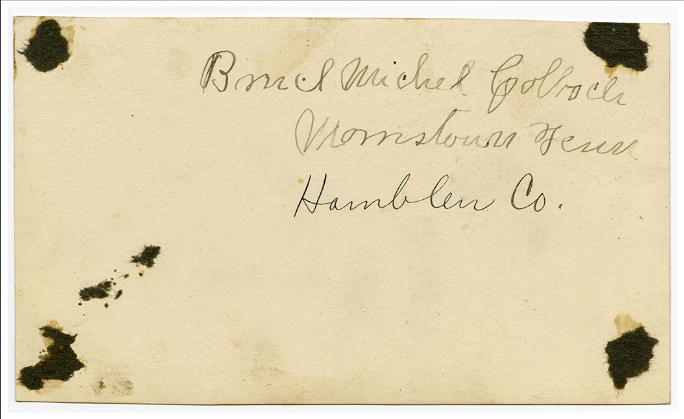 Bruce Michel Colboch
Morristown Tenn
Hamblen Co.